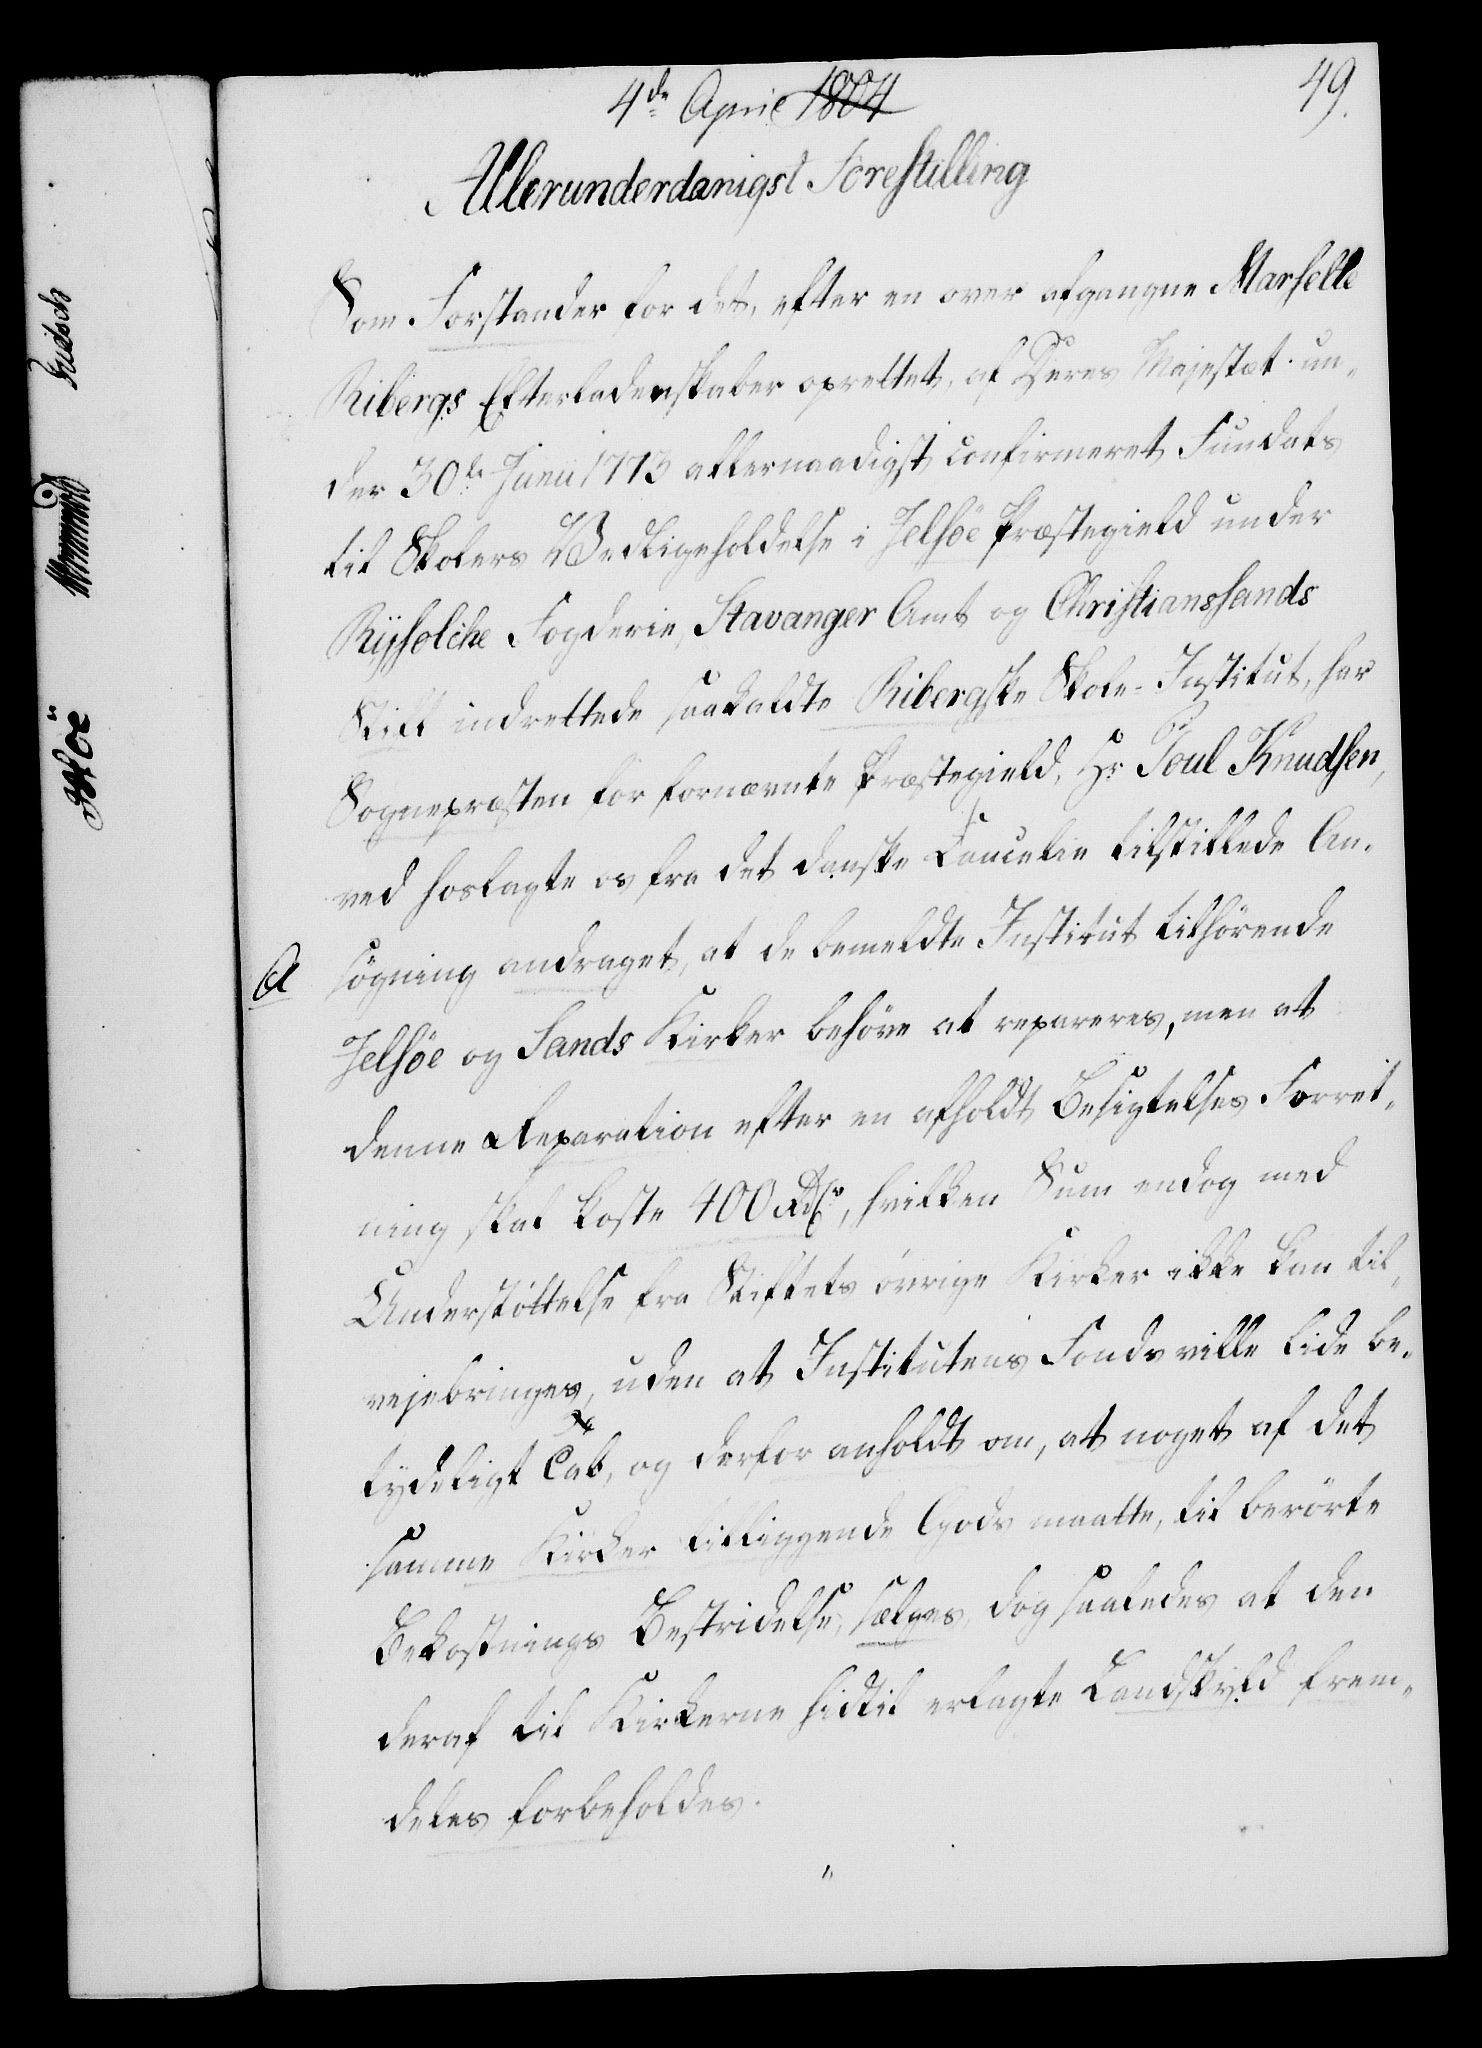 4de April 1804
49.
Allerunderdanigst Forestilling
Som Forstander for det, efter en over afgangne Marselle
Ribergs Efterladenskaber oprettet, af Deres Majestæt un-
der 30de Junii 1773 allernaadigst confirmeret Fundats
til Skolers Vedligeholdelse i Jelsöe Præstegield under
Ryfolche Fogderie, Stavanger Amt og Christianssands
Stift indrettede saakaldte Ribergske Skole-Institut, har
Sognepræsten for fornævnte Præstegield, Hr Poul Knudsen,
ved hoslagte os fra det danske Cancelie tilstillede An-
A
søgning andraget, at de bemeldte Institut tilhörende
Jelsöe og Sands Kirker behöve at repareres, men at
denne Reparation efter en afholdt Besigtelses Forret-
ning skal koste 400 Rdlr, hvilken Sum endog med
Understöttelse fra Stiftets övrige Kirker ikke kan til-
vejebringes, uden at Institutens Fonds ville lide be-
tydeligt Tab, og derfor anholdt om, at noget af det
samme Kirker tilliggende Gods maatte, til berörte
Bekostnings Bestridelse, sælges, dog saaledes at den
deraf til Kirkerne hidtil erlagte Landskyld frem-
deles forbeholdes.
"